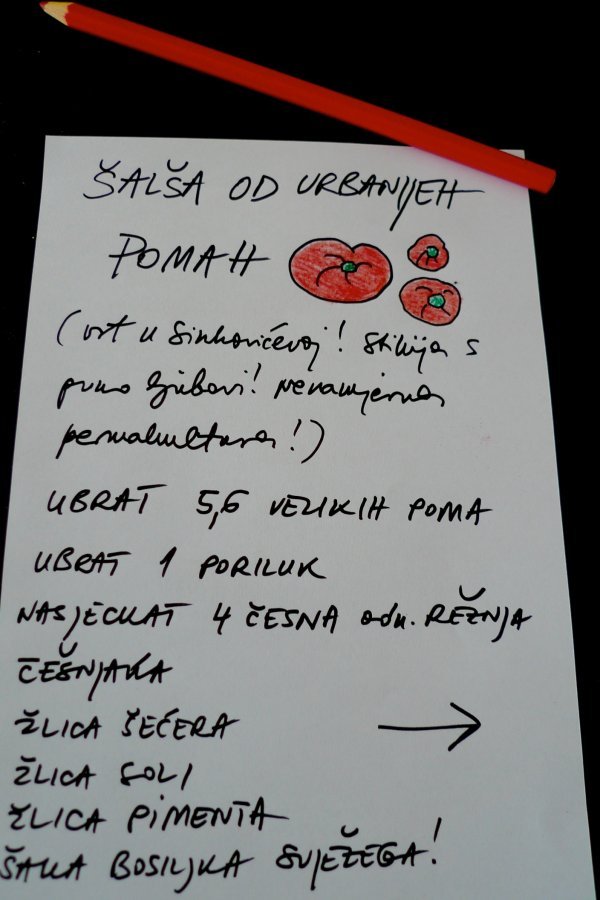 ŠALŠA OD URBANIJEH
POMAH
(vrt u Sinkovićevoj! Stihija s
puno ljubavi! Nenamjerna
permakultura!)
UBRAT 5,6 VELIKIH POMA
UBRAT 1 PORILUK
NASJECKAT 4 ČESNA odn. REŽNJA
ČEŠNJAKA
ŽLICA ŠEĆERA
ŽLICA SOLI
ŽLICA PIMENTA
ŠAKA BOSILJKA SVJEŽEGA!